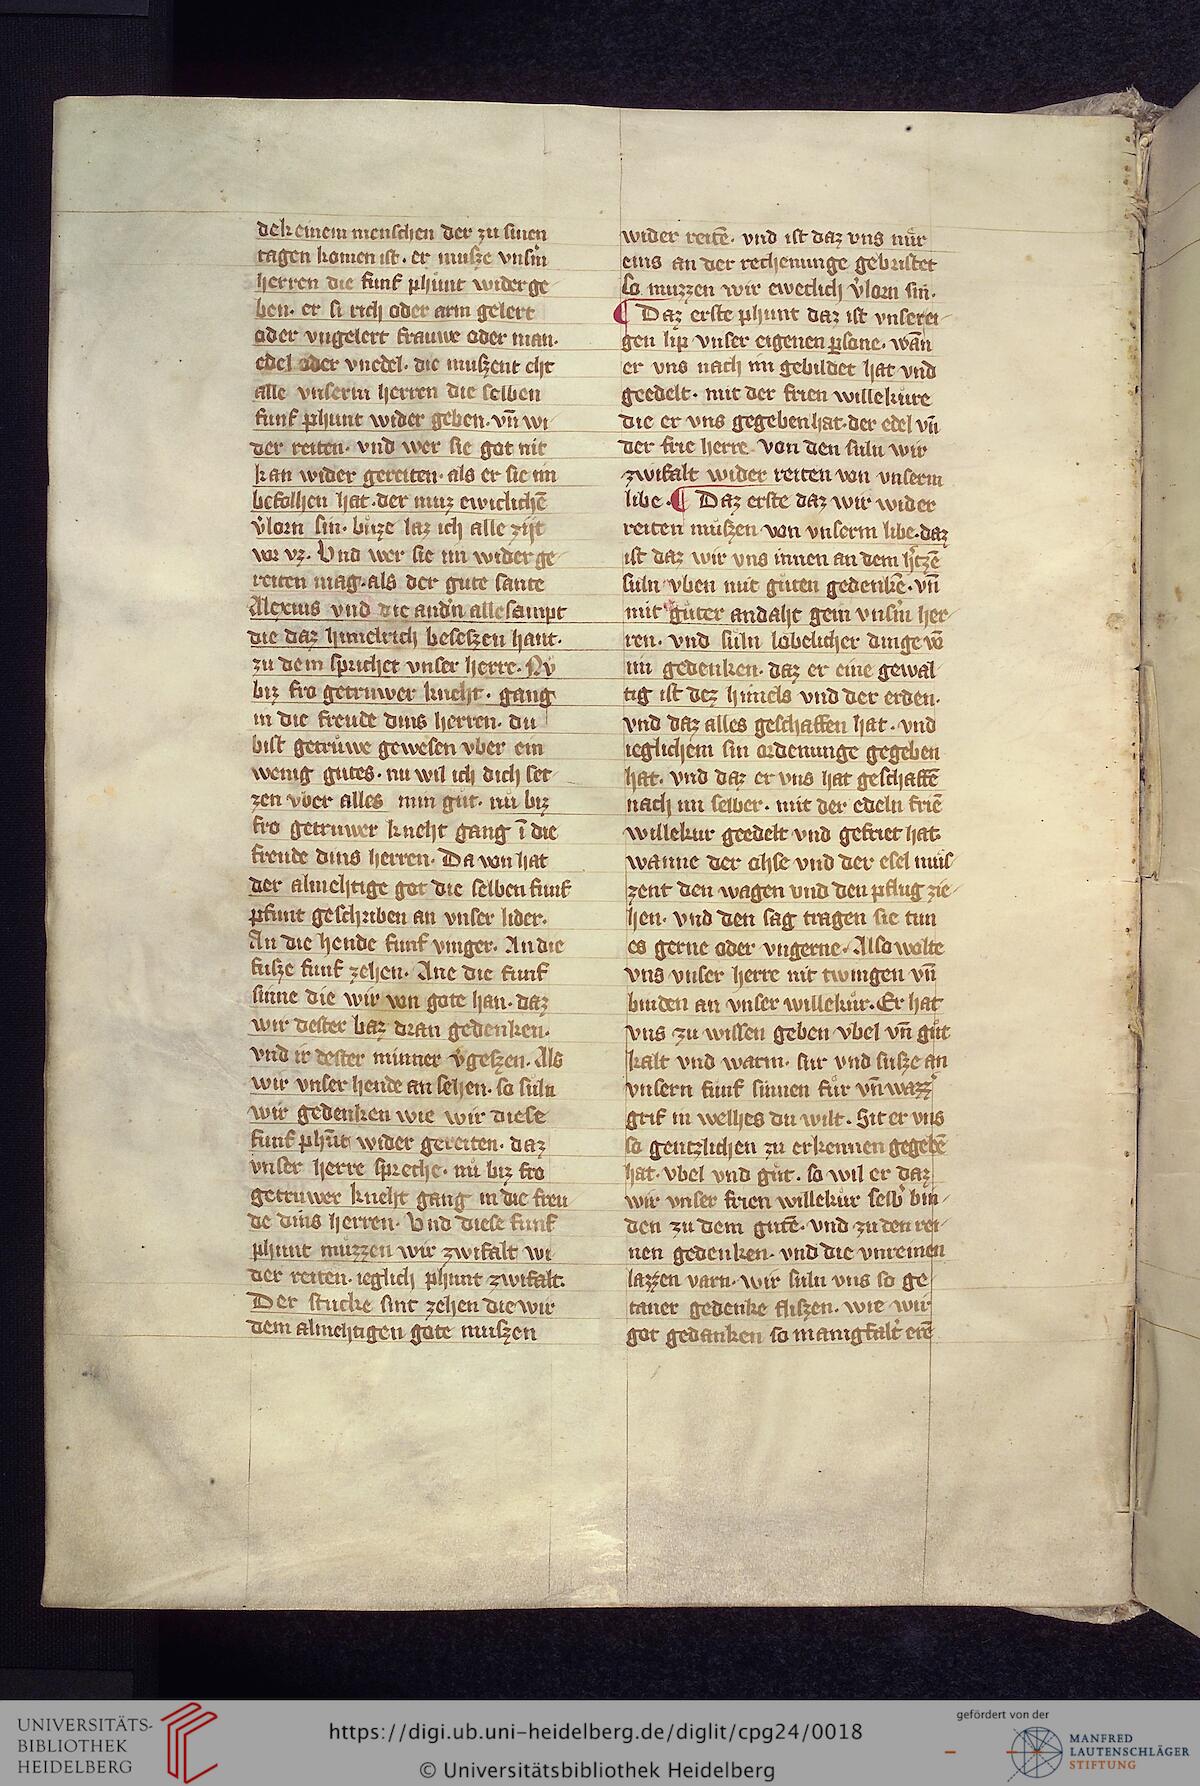 dekeinem menschen der zu sinen
tagen komen ist · er muͤsze vnsͥm
herren die funf phunt widerge
ben · er si rich oder arm gelert
oder vngelert frauwe oder man ·
edel oder vnedel · die muͤszent eht
alle vnserm herren die selben
funf phunt wider geben · vn̄ wi
der reiten · vnd wer sie got nit
kan wider gereiten · als er sie im
befolhen hat · der muz ewiclichē
v̓lorn sin · buͤze laz ich alle zijt
vor vz · Vnd wer sie im widerge
reiten mag · als der gute sante
Alexius vnd die andn̓ alle sampt
die daz himelrich beseszen hant ·
zu dem sprichet vnser herre · Nv
biz fro getruwer kneht · gang
in die freude dins herren · du
bist getruͤwe gewesen vber ein
wenig gutes · nu wil ich dich set
zen vber alles min guͤt · nu biz
fro getruwer kneht gang ī die
freude dins herren · Da von hat
der almehtige got die selben funf
pfunt geschriben an vnser lider ·
An die hende funf vinger · An die
fusze funf zehen · Ane die funf
sinne die wir von gote han · daz
wir dester baz dran gedenken ·
vnd ir dester minner v̓geszen · Als
wir vnser hende an sehen · so suͤln
wir gedenken wie wir diese
funf phūt wider gereiten · daz
vnser herre spreche · nuͤ biz fro
getruwer kneht gang in die freu
de dins herren · Vnd diese funf
phunt muͤzzen wir zwifalt wi
der reiten · ieglich phunt zwifalt ·
Der stucke sint zehen die wir
dem almehtigen gote muͤszen
wider reitē · vnd ist daz vns nuͤr
eins an der rechenunge gebristet
so muzzen wir eweclich v̓lorn sin ·
¶ Daz erste phunt daz ist vnser ei
gen lip vnser eigenen ꝑsone · wān
er vns nach im gebildet hat vnd
geedelt · mit der frien willekuͤre
die er vns gegeben hat · der edel vn̄
der frie herre · von den suln wir
zwifalt wider reiten von vnserm
libe · ¶ Daz erste daz wir wider
reiten muͤszen von vnserm libe · daz
ist daz wir vns innen an dem h̓tzē
suln vben mit guͤten gedenkē · vn̄
mit guͤter andaht gein vnsͥm her
ren · vnd suͤln lobelicher dinge vō
im gedenken · daz er eine gewal
tig ist dez himels vnd der erden ·
vnd daz alles geschaffen hat · vnd
ieglichem sin ordenunge gegeben
hat · vnd daz er vns hat geschaffē
nach im selber · mit der edeln friē
willekur geedelt vnd gefriet hat
wanne der ohse vnd der esel muͤs
zent den wagen vnd den pflug zie
hen · vnd den sag tragen sie tun
es gerne oder vngerne · Also wolte
vns vnser herre nit twingen vn̄
binden an vnser willekuͤr · Er hat
vns zu wissen geben vbel vn̄ guͤt
kalt vnd warm · sur vnd susze an
vnsern funf sinnen fuͤr vn̄ wazz̓
grif in welhes du wilt · Sit er vns
so gentzlichen zu erkennen gegebē
hat · vbel vnd guͤt · so wil er daz
wir vnser frien willekuͤr selb̓ bin
den zu dem gutē · vnd zu den rei
nen gedenken · vnd die vnreinen
lazzen varn · wir suln vns so ge
taner gedenke fliszen · wie wir
got gedanken so manigfalt̓ erē
UNIVERSITÄTS-
BIBLIOTHEK
HEIDELBERG
https://digi.ub.uni-heidelberg.de/diglit/cpg24/0018
© Universitätsbibliothek Heidelberg
gefördert von der
MANFRED
LAUTENSCHLÄGER
STIFTUNG